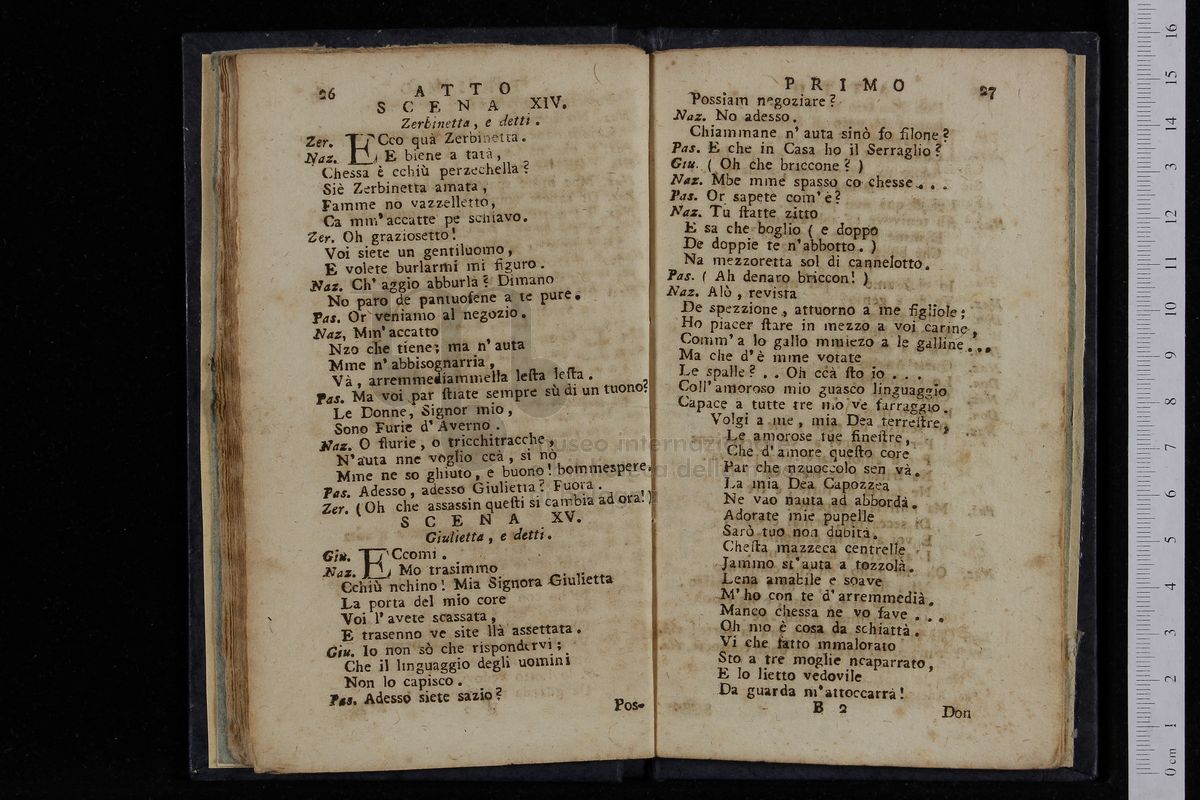 26 ATTO
SCENA XIV.
Zerbinetta, e detti.
Zer. ECco quà Zerbinetta.
Naz. E biene a tatà,
Chessa è cchiù perzechella?
Siè Zerbinetta amata,
Famme no vazzelletto,
Ca mm'accatte pe schiavo.
Zer. Oh graziosetto!
Voi siete un gentiluomo,
E volete burlarmi mi figuro.
Naz. Ch' aggio abburlà? Dimano
No paro de pantuofene a te pure.
Pas. Or veniamo al negozio.
Naz, Mm'accatto
Nzo che tiene; ma n'auta
Mme n'abbisognarria,
Và, arremmediammella leſta leſta.
Pas. Ma voi par ſtiate sempre sù di un tuono?
Le Donne, Signor mio,
Sono Furie d'Averno.
Naz. O flurie, o tricchitracche,
N'auta nne voglio ccà, si nò
Mme ne so ghiuto, e buono! bommespere.
Pas. Adesso, adesso Giulietta? Fuora.
Zer. (Oh che assassin queſti si cambia ad ora!)
SCENA XV.
Giulietta, e detti.
Giu. ECcomi.
Naz. Mo trasimmo
Cchiù nchino! Mia Signora Giulietta
La porta del mio core
Voi l'avete scassata,
E trasenno ve site llà assettata.
Giu. Io non sò che rispondervi;
Che il linguaggio degli uomini
Non lo capisco.
Pas. Adesso siete sazio?
Pos-
PRIMO 27
Possiam negoziare?
Naz. No adesso.
Chiammane n'auta sinò fo filone?
Pas. E che in Casa ho il Serraglio?
Giu. (Oh che briccone?)
Naz. Mbe mme spasso co chesse...
Pas. Or sapete com'è?
Naz. Tu ſtatte zitto
E sa che boglio (e doppo
De doppie te n'abbotto.)
Na mezzoretta sol di cannelotto.
Pas. (Ah denaro briccon!)
Naz. Alò, revista
De spezzione, attuorno a me figliole;
Ho piacer ſtare in mezzo a voi carine,
Comm'a lo gallo mmiezo a le galline...
Ma che d'è mme votate
Le spalle? .. Oh ccà ſto io...
Coll'amoroso mio guasco linguaggio
Capace a tutte tre mo ve farraggio.
Volgi a me, mia Dea terreſtre,
Le amorose tue fineſtre,
Che d'amore queſto core
Par che nzuoccolo sen và.
La mia Dea Capozzea
Ne vao nauta ad abbordà.
Adorate mie pupelle
Sarò tuo non dubità.
Cheſta mazzeca centrelle
Jammo st'auta a tozzolà.
Lena amabile e soave
M'ho con te d'arremmedià.
Manco chessa ne vo fave...
Oh mo è cosa da schiattà.
Vi che fatto mmalorato
Sto a tre moglie ncaparrato,
E lo lietto vedovile
Da guarda m'attoccarrà!
B 2
Don
16
15
14
13
12
11
10
9
8
7
6
5
4
3
2
1
0 cm